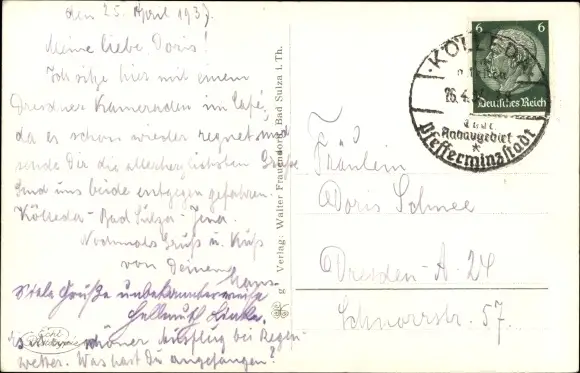 den 25. April 1937.
Meine liebe Doris!
Ich sitze hier mit einem
Dresdner Kameraden im Café,
da es schon wieder regnet und
sende Dir die allerherzlichsten Grüße
Sind uns beide entgegen gefahren.
Kölleda - Bad Sulza - Jena.
Nochmals Gruß u. Kuß
von Deinem Hans.
Viele Grüße unbekannterweise
Hellmuth
schöner Ausflug bei Regen-
wetter. Was hast Du angefangen?
Echte
g Verlag: Walter Frauendorf, Bad Sulza i. Th.
6 6
Deutsches Reich
KÖLLEDA
26.4.
Anbaugebiet
*
Pfefferminzstadt
Fräulein
Doris Schnee
Dresden-A. 24
Schnorrstr. 57.